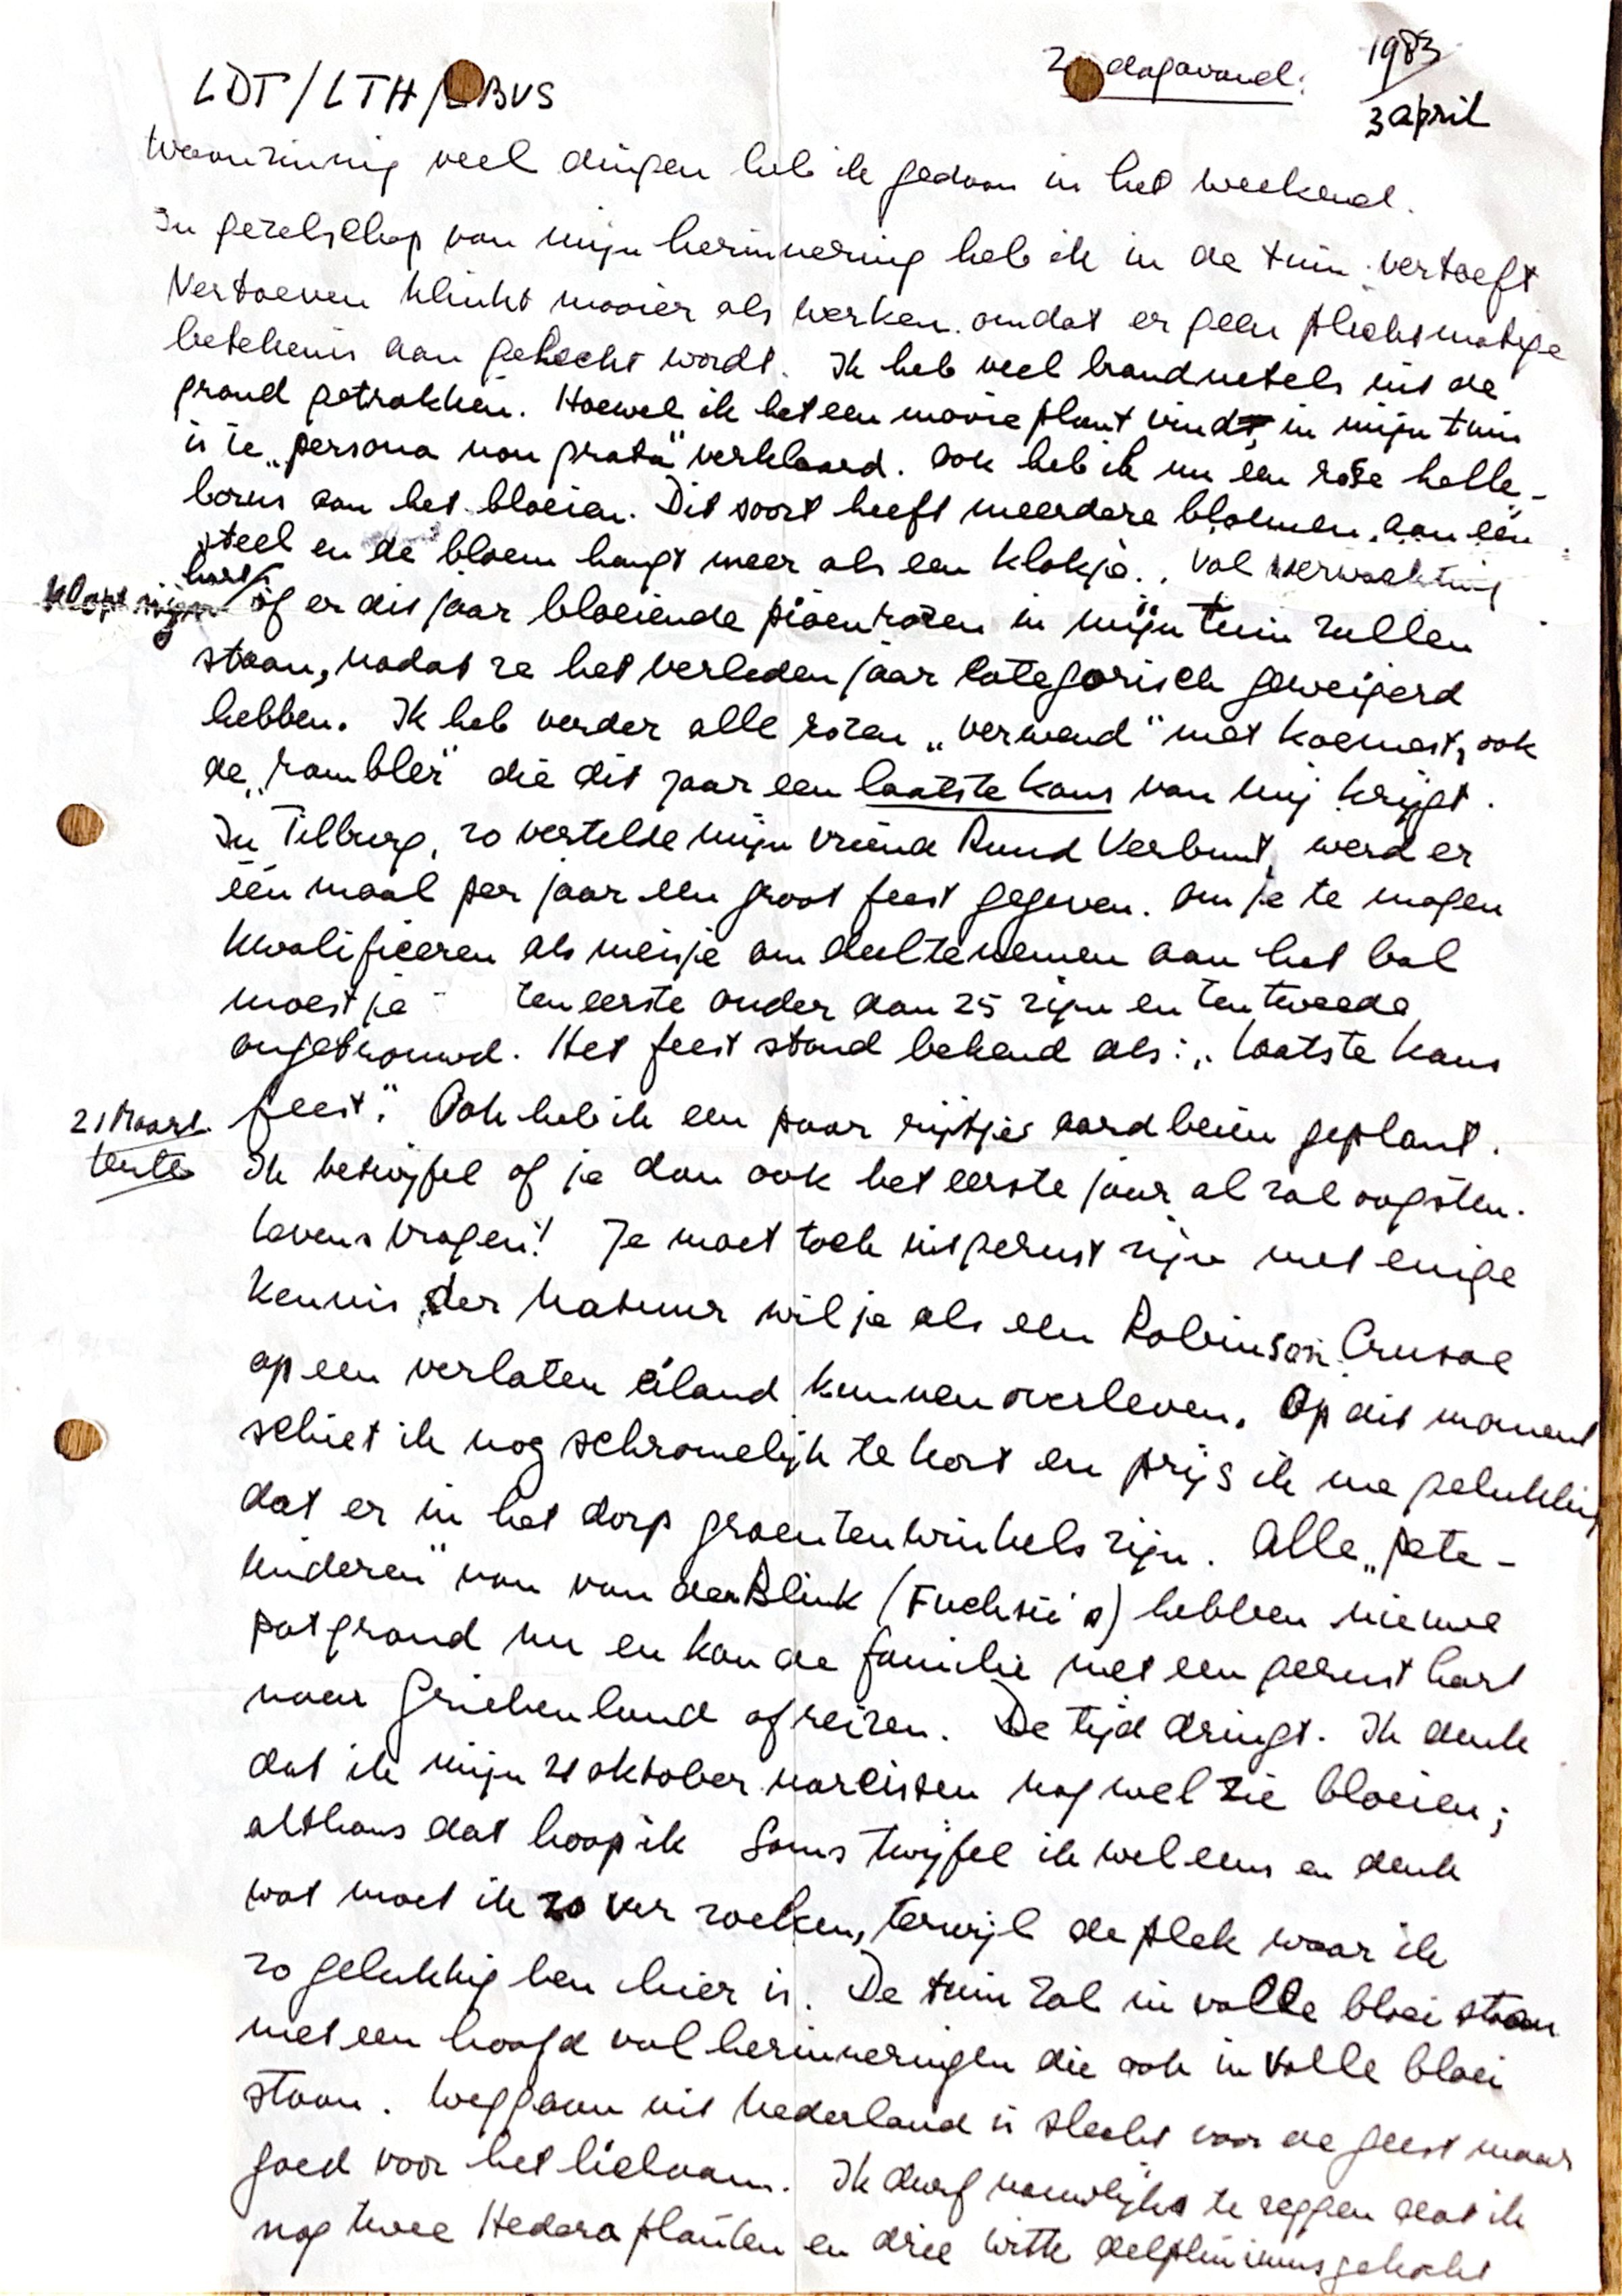 LDT/LTH/ BVS
Z dagavond: 1983
3 april
Waanzinnig veel dingen heb ik gedaan in het weekend.
In gezelschap van mijn herinnering heb ik in de tuin vertoeft
Vertoeven klinkt mooier als werken omdat er geen plichtmatige
betekenis aan gehecht wordt. Ik heb veel brandnetels uit de
grond getrokken. Hoewel ik het een mooie plant vindt, in mijn tuin
is ie „persona non grata" verklaard. Ook heb ik nu een roze helle-
borus aan het bloeien. Dit soort heeft meerdere bloemen aan één
steel en de bloem hangt meer als een klokje. Vol verwachting
klopt mijn hart of er dit jaar bloeiende pioenrozen in mijn tuin zullen
staan, nadat ze het verleden jaar categorisch geweigerd
hebben. Ik heb verder alle rozen „verwend" met koemest, ook
de „rambler" die dit jaar een laatste kans van mij krijgt.
In Tilburg, zo vertelde mijn vriend Ruud Verbunt, werd er
één maal per jaar een groot feest gegeven. Om je te mogen
kwalificeren als meisje om deel te nemen aan het bal
moest je ten eerste ouder dan 25 zijn en ten tweede
ongetrouwd. Het feest stond bekend als: „laatste kans
feest". Ook heb ik een paar rijtjes aardbeien geplant.
21 Maart
lente
Ik betwijfel of je dan ook het eerste jaar al zal oogsten.
Levensvragen! Je moet toch uitgerust zijn met enige
kennis der natuur wil je als een Robinson Crusoe
op een verlaten eiland kunnen overleven. Op dit moment
schiet ik nog schromelijk te kort en prijs ik me gelukkig
dat er in het dorp groentenwinkels zijn. Alle „pete-
kinderen" van van der Blink (Fuchsii's) hebben nieuwe
potgrond nu en kan de familie met een gerust hart
naar Griekenland afreizen. De tijd dringt. Ik denk
dat ik mijn 21 oktober narcissen nog wel zie bloeien;
althans dat hoop ik Soms twijfel ik wel eens en denk
wat moet ik zo ver zoeken, terwijl de plek waar ik
zo gelukkig ben hier is. De tuin zal in volle bloei staan
met een hoofd vol herinneringen die ook in volle bloei
staan. Weggaan uit Nederland is slecht voor de geest maar
goed voor het lichaam. Ik durf nauwlijks te zeggen dat ik
nog twee Hedera planten en drie witte delphiniums gekocht